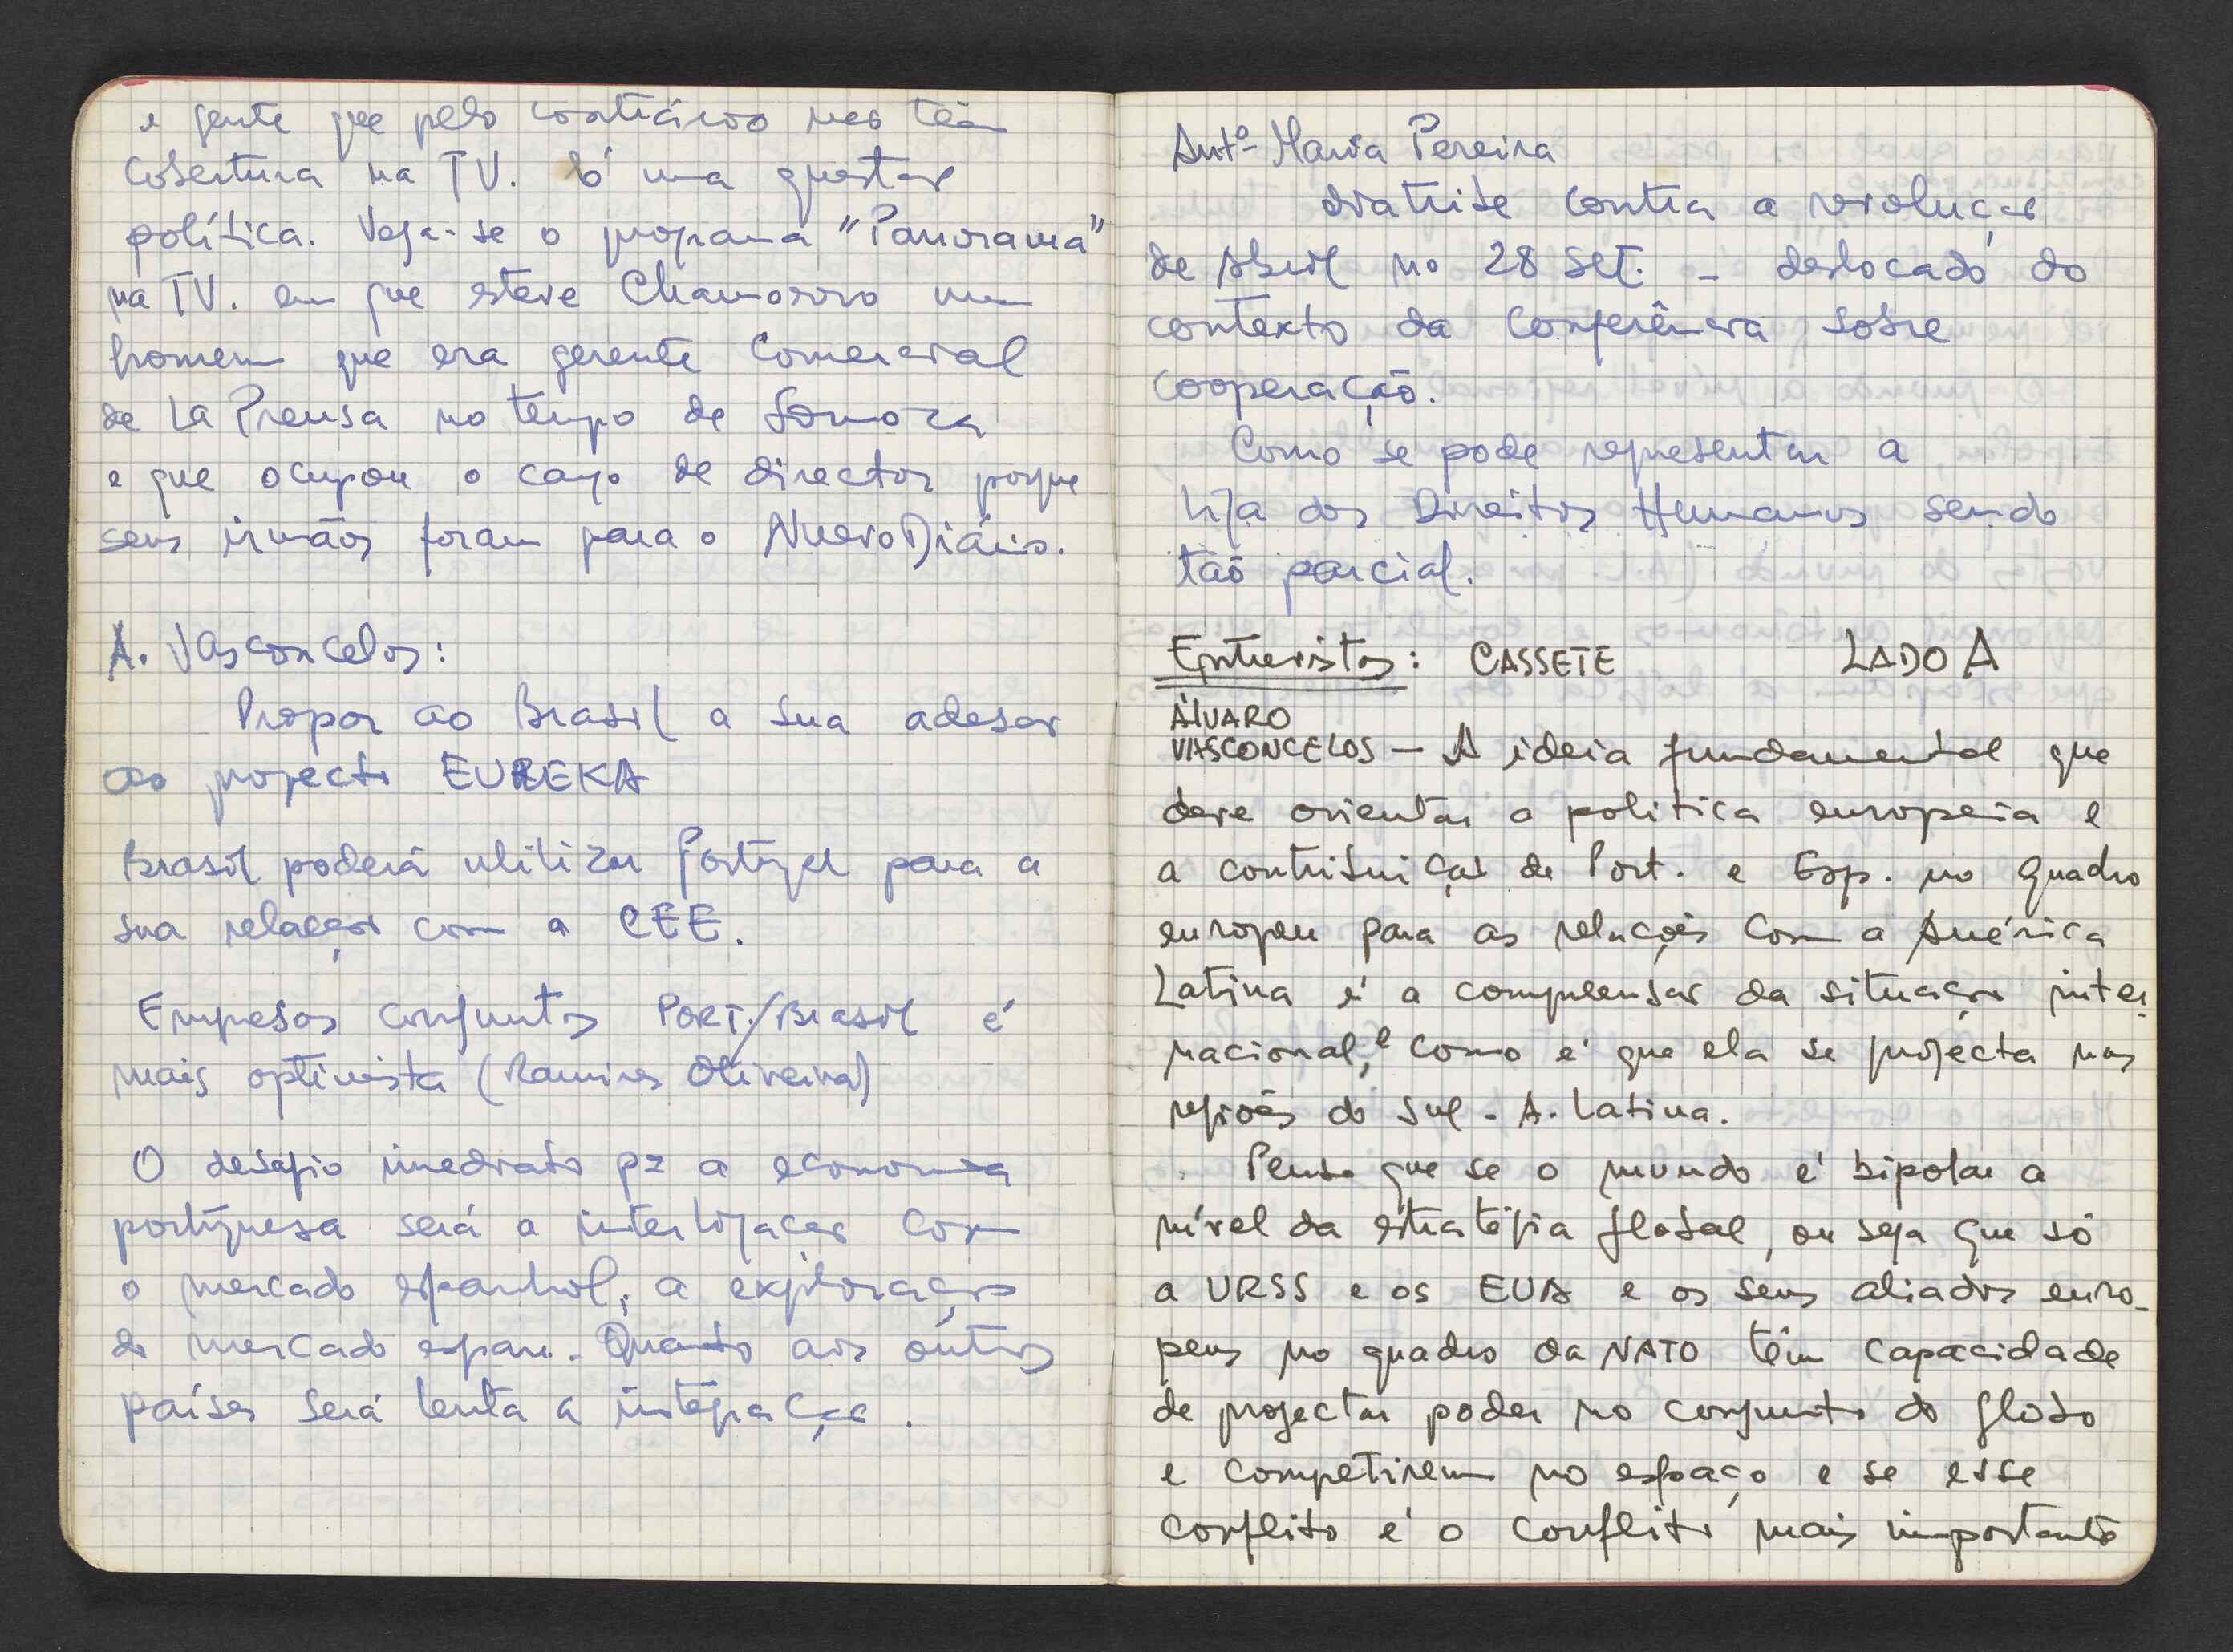 e gente que pelo contrário não têm
cobertura na TV. É uma questão
política. Veja-se o programa "Panorama"
na TV. em que esteve Chamorro um
homem que era gerente comercial
de La Prensa no tempo de Somoza
e que ocupou o cargo de director porque
seus irmãos foram para o Nuevo Diário.
A. Vasconcelos:
Propor ao Brasil a sua adesão
ao projecto EUREKA
Brasil poderá utilizar Portugal para a
sua relação com a CEE.
Empresas conjuntas PORT./Brasil é
mais optimista (Ramires Oliveira)
O desafio imediato pª a economia
portuguesa será a interligação com
o mercado espanhol, a exploração
do mercado espan. Quanto aos outros
países será lenta a integração.
Antº Maria Pereira
diatribe contra a revolução
de Abril no 28 Set. - deslocado do
contexto da Conferência sobre
cooperação.
Como se pode representar a
Liga dos Direitos Humanos sendo
tão parcial.
Entrevistas: CASSETE LADO A
ÁLVARO
VASCONCELOS - A ideia fundamental que
deve orientar a politica europeia e
a contribuição de Port. e Esp. no quadro
europeu para as relações com a América
Latina é a compreensão da situação inter-
nacional, e como é que ela se projecta nas
regiões do Sul - A. Latina.
Penso que se o mundo é bipolar a
nível da estratégia global, ou seja que só
a URSS e os EUA e os seus aliados euro-
peus no quadro da NATO têm capacidade
de projectar poder no conjunto do globo
e competirem no espaço e se esse
conflito é o conflito mais importante